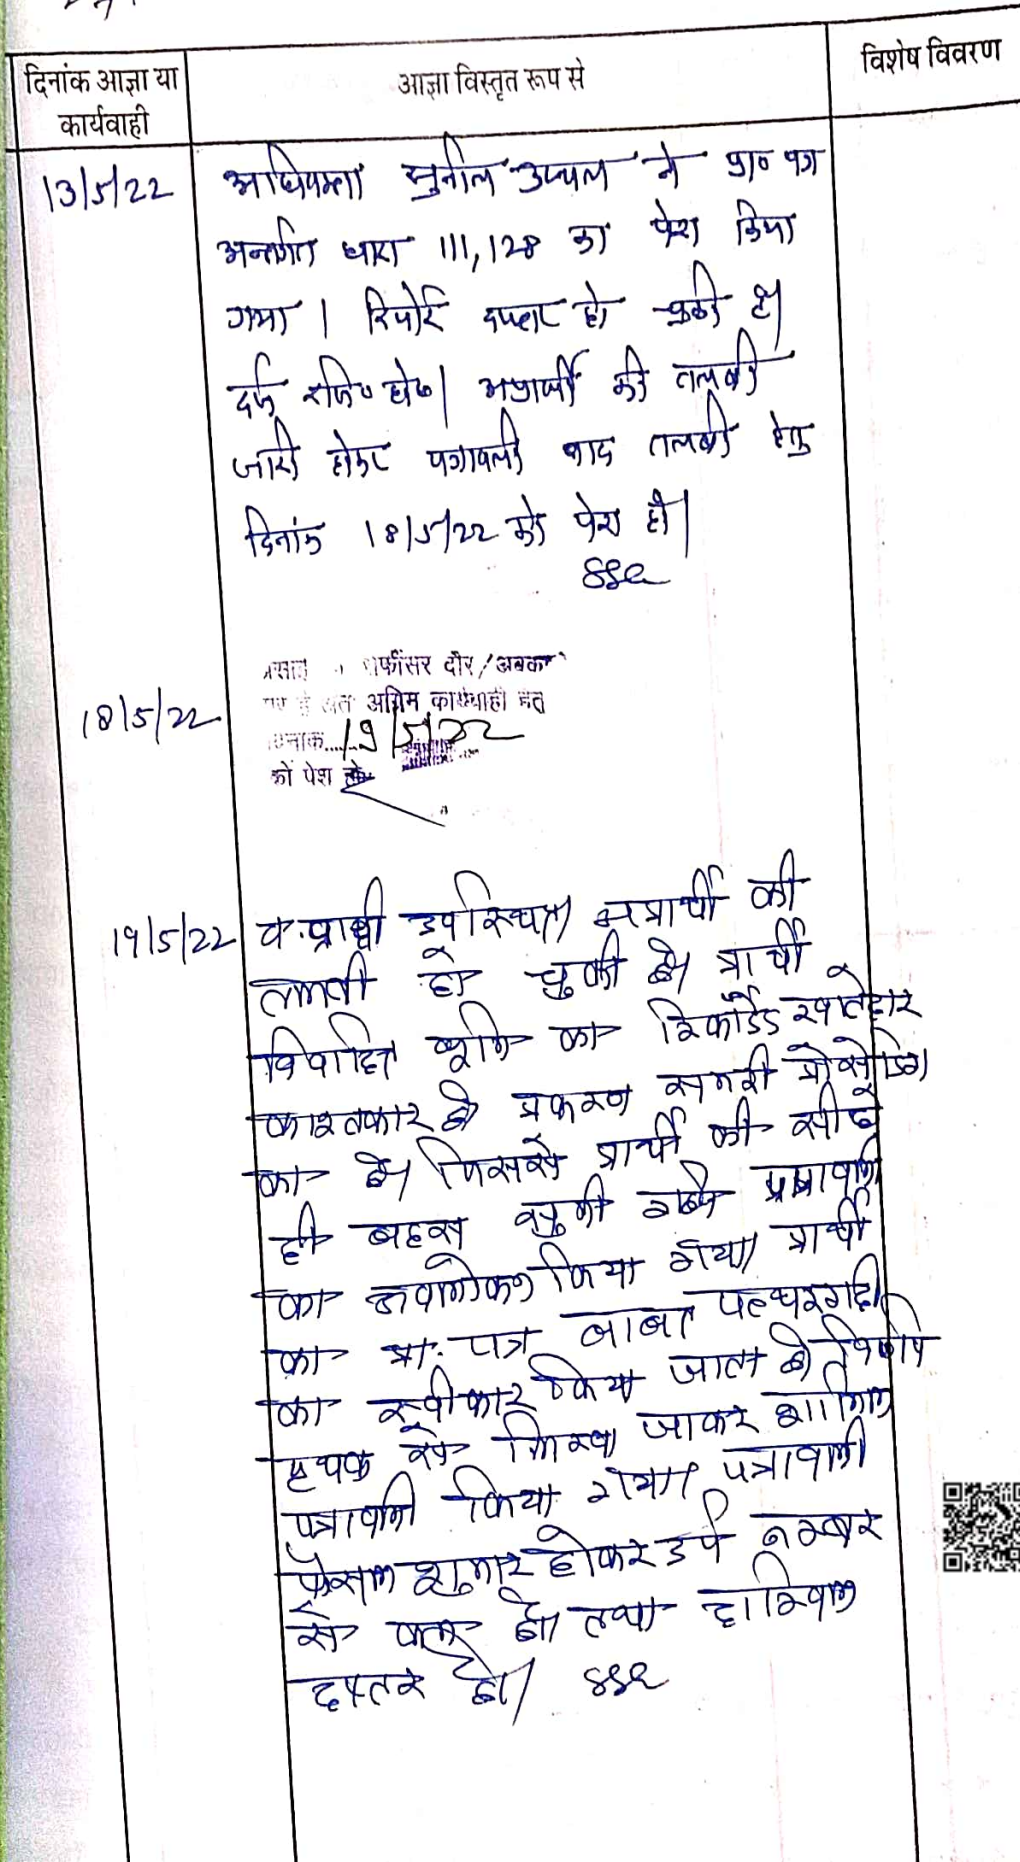 दिनांक आज्ञा या
कार्यवाही
आज्ञा विस्तृत रूप से
विशेष विवरण
13/5/22
अधिवक्ता सुनील उप्पल ने प्रा० पत्र
अन्तर्गत धारा 111,128 का पेश किया
गया । रिपोर्ट दफ्तर हो चुकी है।
दर्ज रजि० हो० । अप्रार्थी की तलबी
जारी होकर पत्रावली बाद तलबी हेतु
दिनांक 18/5/22 को पेश हो।
18/5/22
ऑफीसर दौरे/अवका
अग्रिम कार्यवाही हेतु
दिनांक....19/5/22
को पेश हो
19/5/22
व.प्रार्थी उपस्थित। अप्रार्थी की
तलबी हो चुकी है। प्रार्थी
विवादित भूमि का रिकॉर्डेड खातेदार
काश्तकार है। प्रकरण समरी प्रोसेडिंग
का है। जिससे प्रार्थी की सीधे
ही बहस सुनी गई। पत्रावली
का अवलोकन किया गया। प्रार्थी
का प्रा. पत्र बाबत पत्थरगढी
का स्वीकार किया जाता है। निर्णय
पृथक से लिखा जाकर शामिल
पत्रावली किया गया। पत्रावली
फैसल शुमार होकर दर्ज नम्बर
से कम हो। तथा दाखिल
दफ्तर हो।